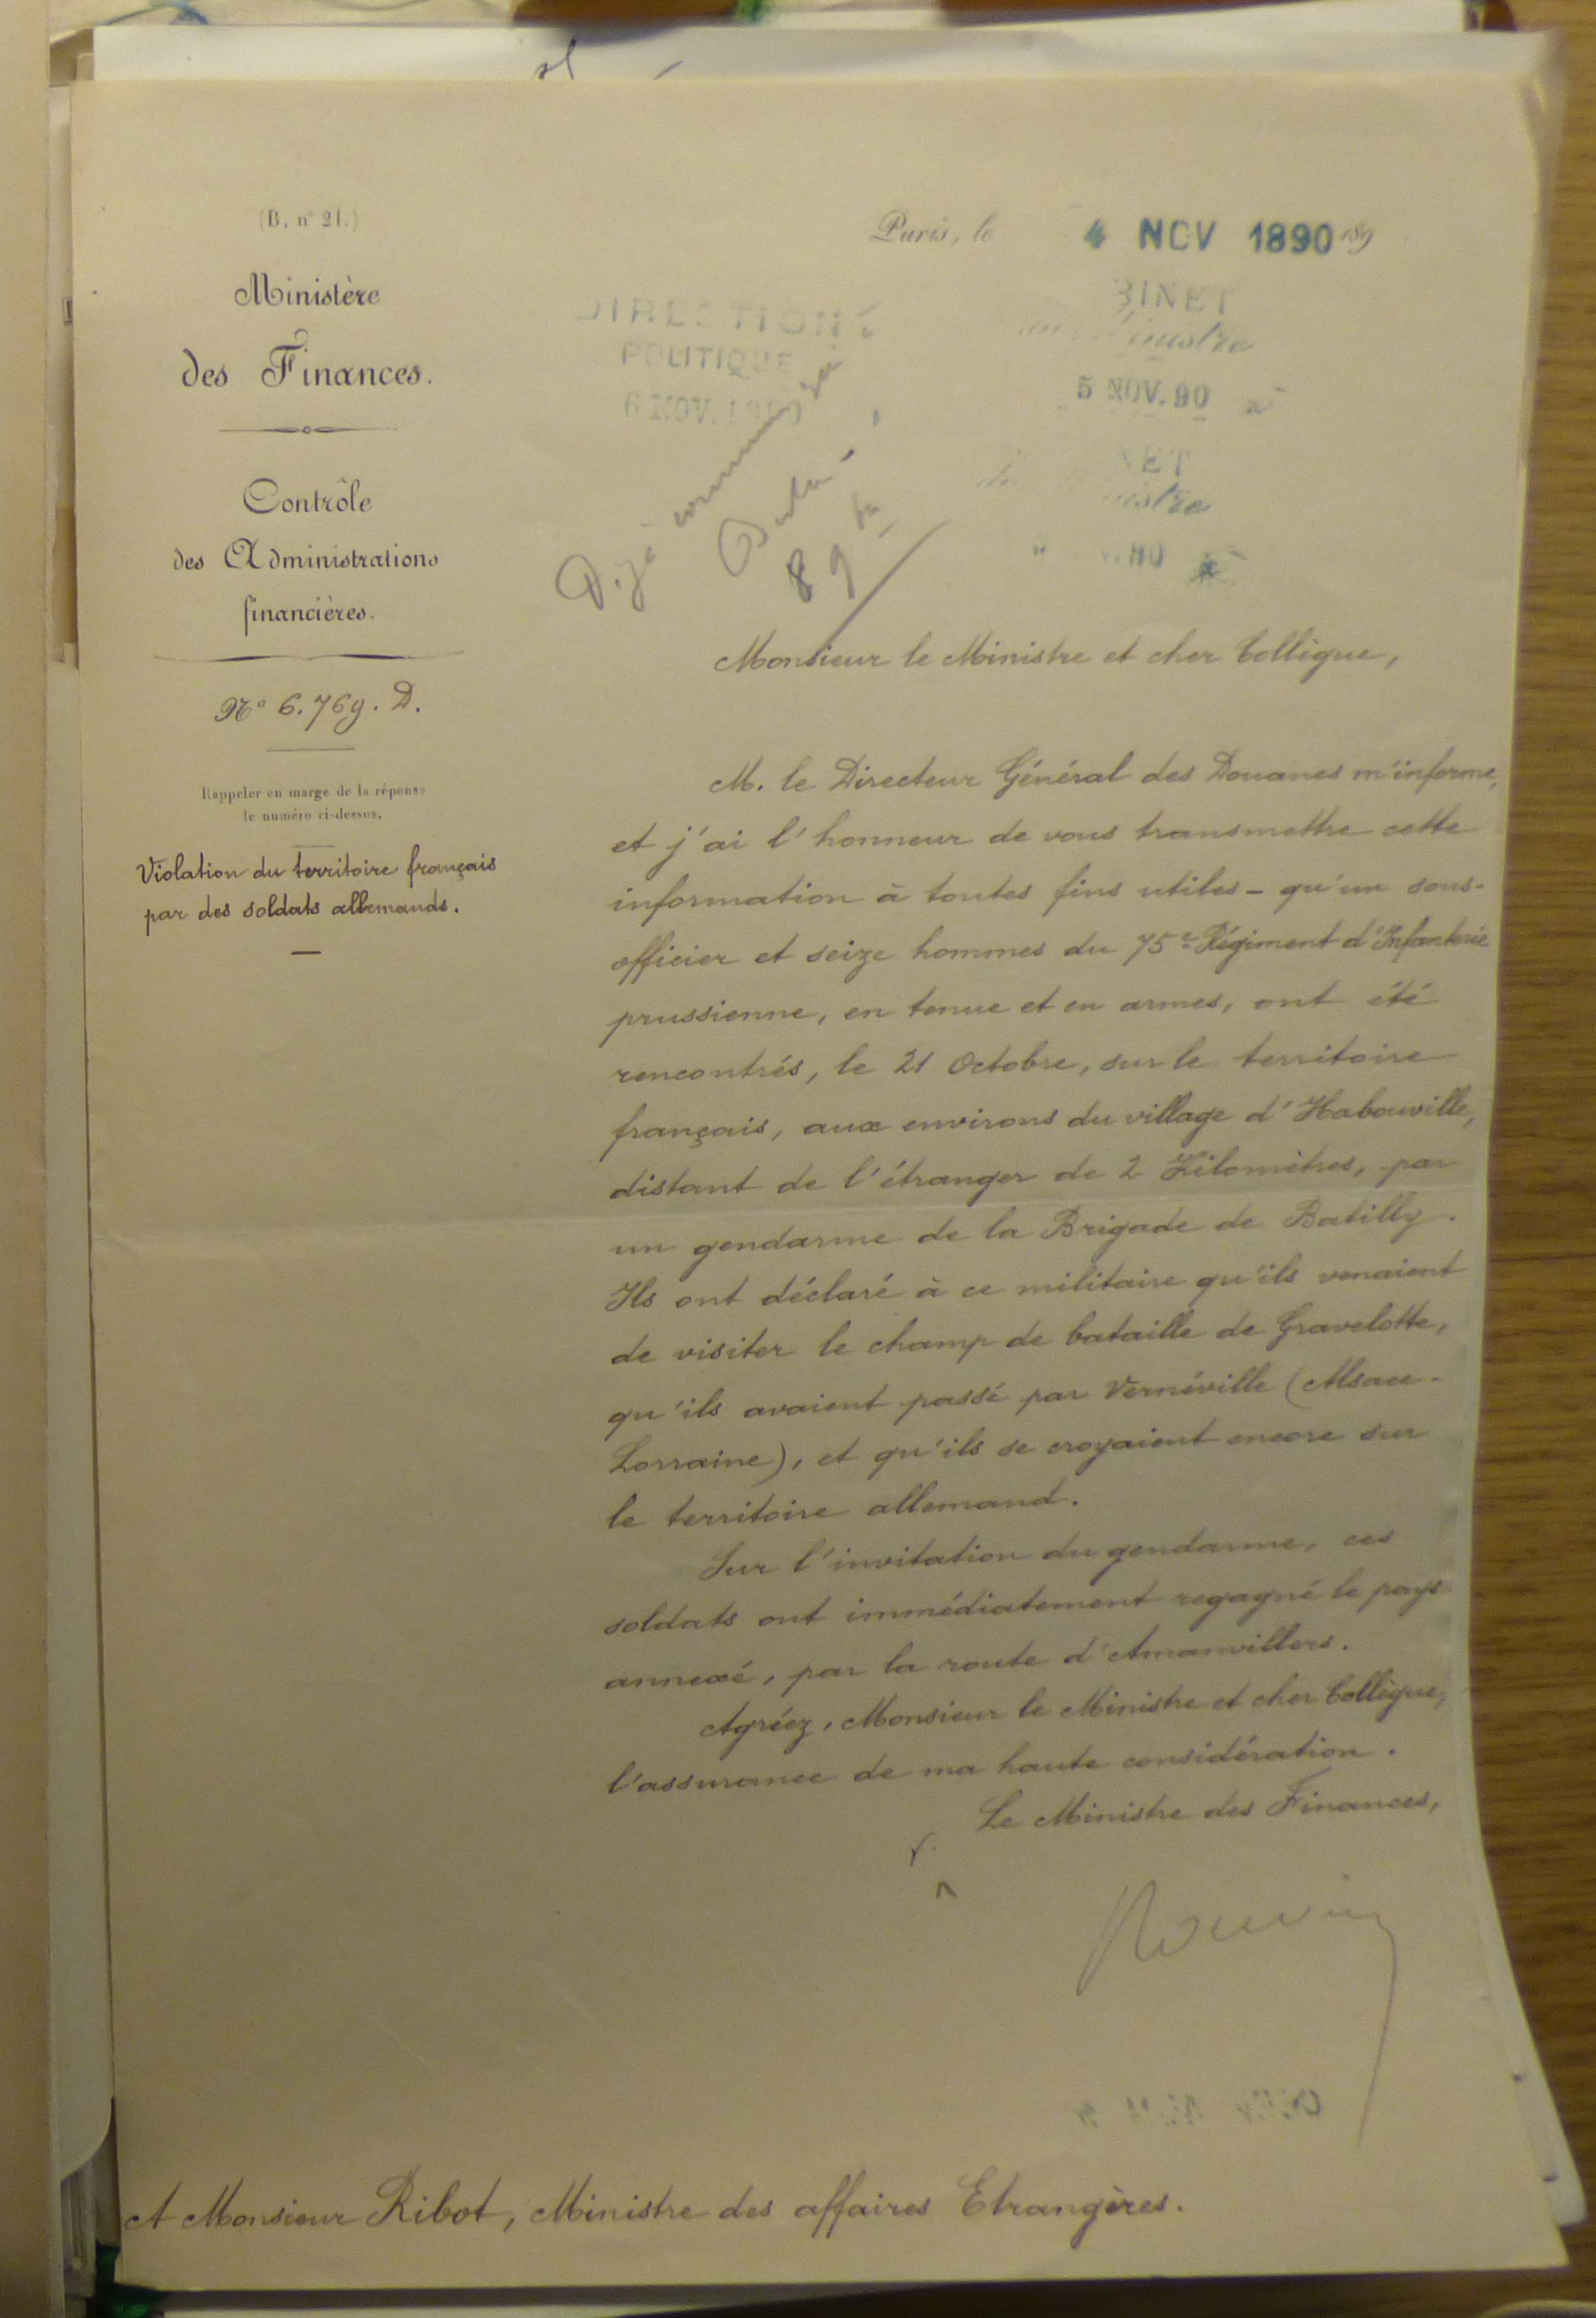 (B. n° 21.)
Ministère
des Finances.
Contrôle
des Administrations
financières.
N° 6.769. D.
Rappeler en marge de la réponse
le numéro ci-dessus.
Violation du territoire français
par des soldats allemands.
Paris, le 4 NOV 1890 189
DIRECTION
POLITIQUE
6 NOV. 1890
BINET
du Ministre
5 NOV. 90
NET
nistre
90
Déjà
89
Monsieur le Ministre et cher Collègue,
M. le Directeur Général des Douanes m'informe,
et j'ai l'honneur de vous transmettre cette
information à toutes fins utiles - qu'un sous-
officier et seize hommes du 75e Régiment d'Infanterie
prussienne, en tenue et en armes, ont été
rencontrés, le 21 Octobre, sur le territoire
français, aux environs du village d'Habouville,
distant de l'étranger de 2 Kilomètres, par
un gendarme de la Brigade de Batilly.
Ils ont déclaré à ce militaire qu'ils venaient
de visiter le champ de bataille de Gravelotte,
qu'ils avaient passé par Vernéville (Alsace-
Lorraine), et qu'ils se croyaient encore sur
le territoire allemand.
Sur l'invitation du gendarme, ces
soldats ont immédiatement regagné le pays
annexé, par la route d'Amanvillers.
Agréez, Monsieur le Ministre et cher Collègue,
l'assurance de ma haute considération.
Le Ministre des Finances,
Rouvier
A Monsieur Ribot, Ministre des affaires Etrangères.